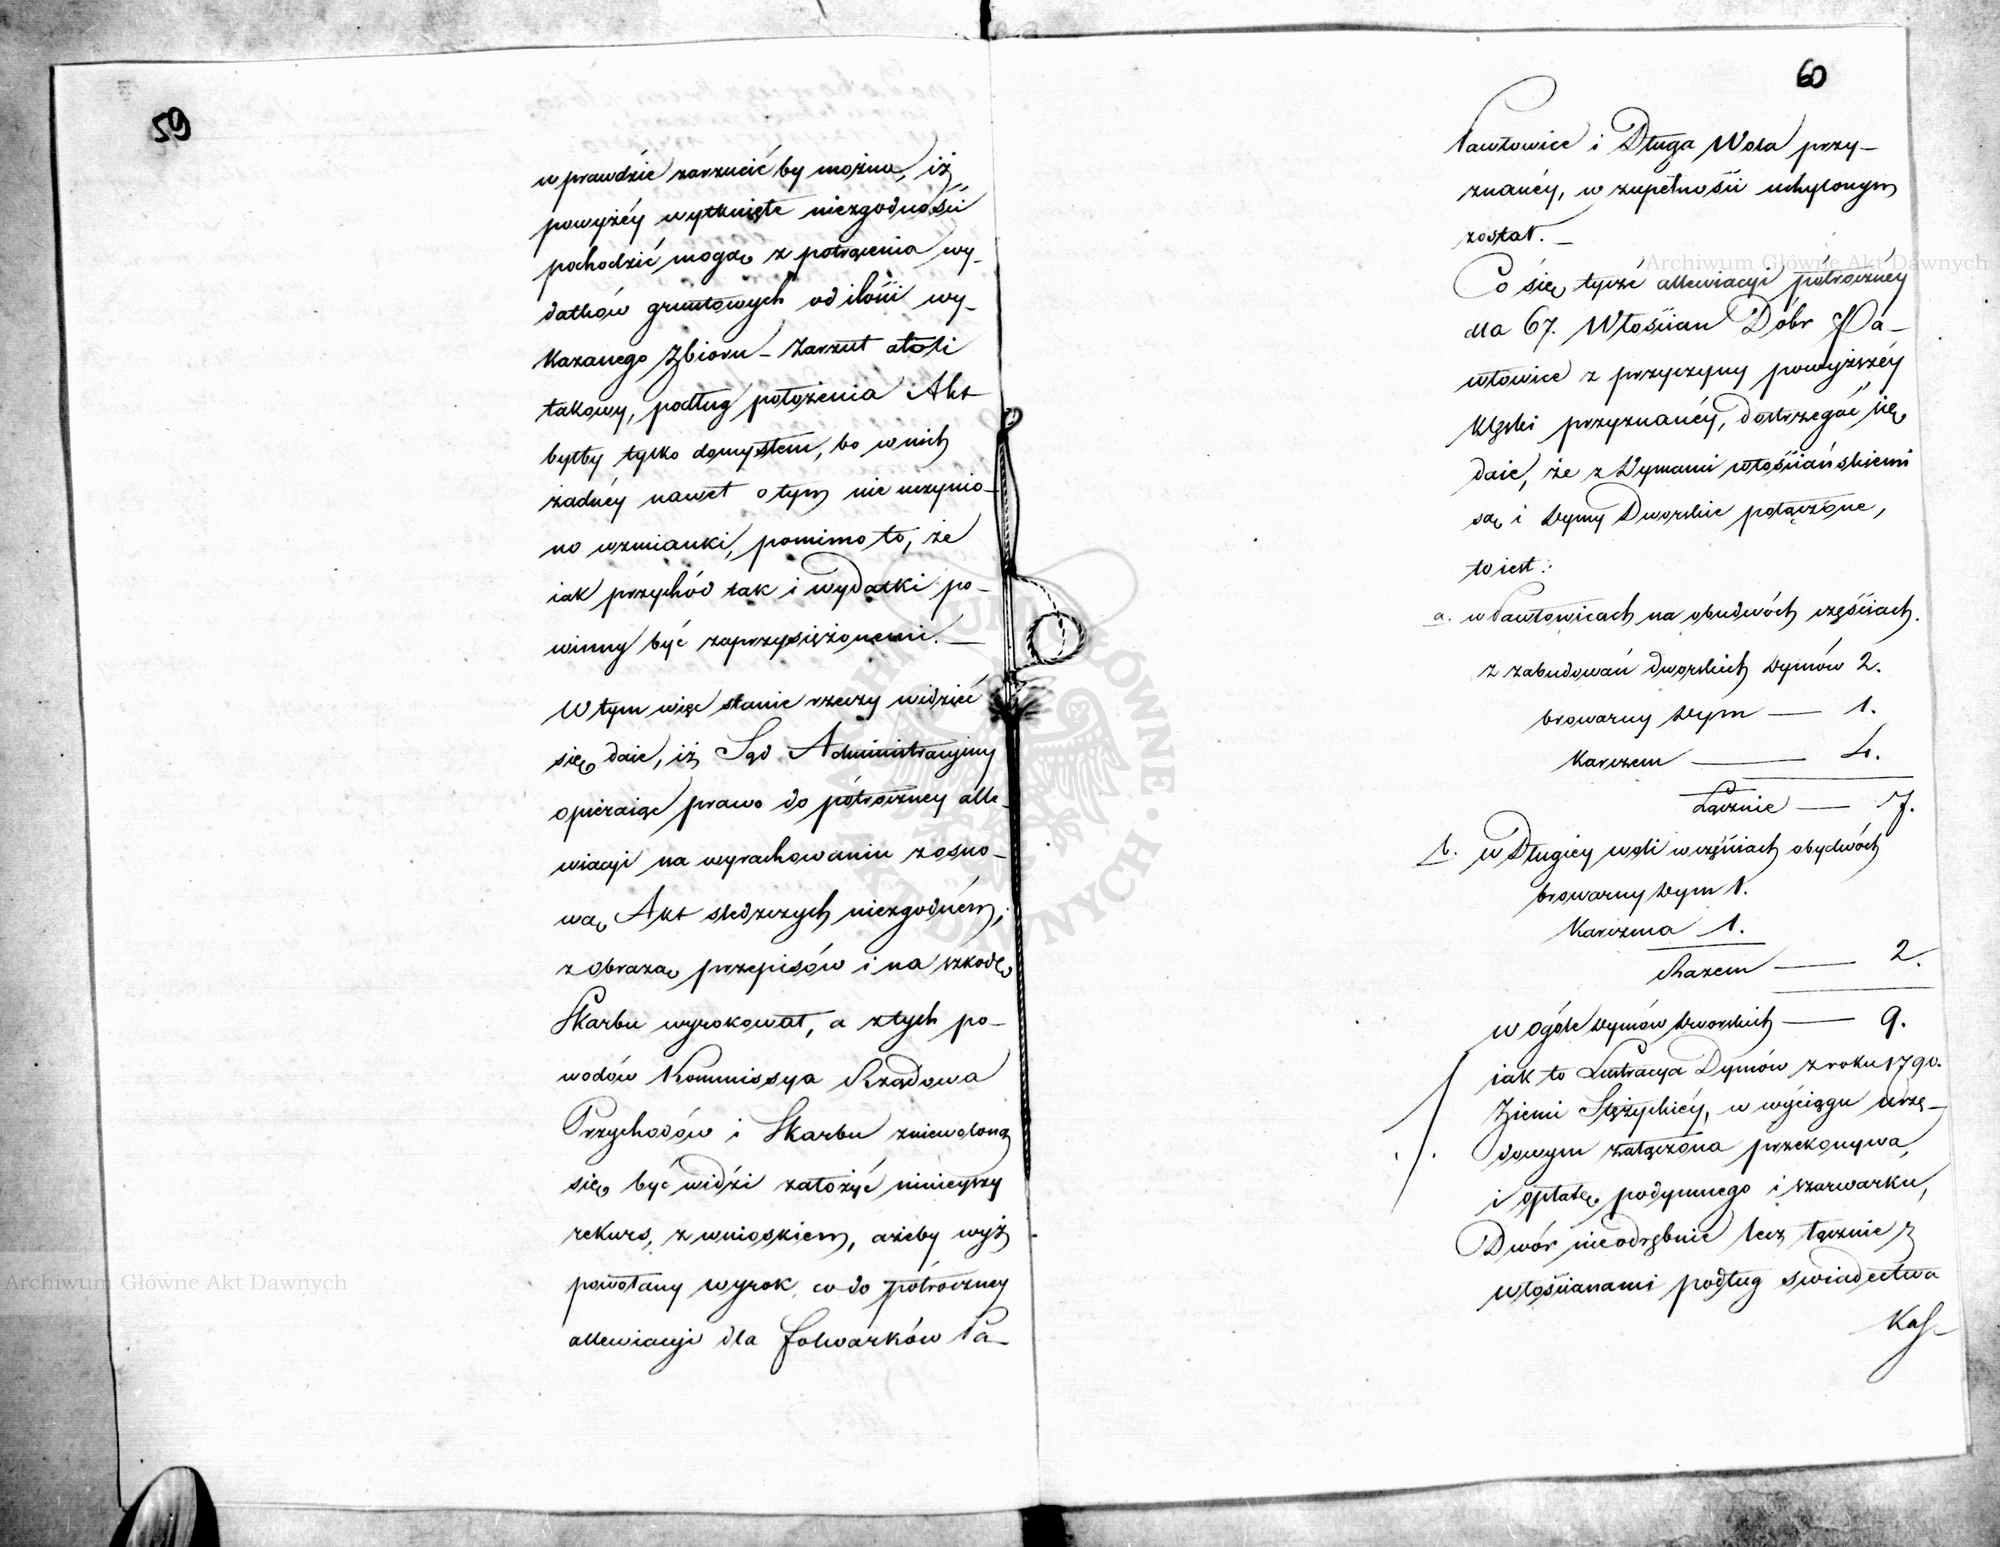 59
wprawdzie zarzucić by można, iż
powyżéy wytknięte niezgodności
pochodzić mogą z potrącenia wy-
datków gruntowych od ilości wy-
kazanego Zbioru – Zarzut atoli
takowy, podług położenia Akt
byłby tylko domysłem, bo w nich
żadnéy nawet o tym nie uczynio-
no wzmianki, pomimo to, że
iak przychód tak i wydatki po-
winny być zaprzysiężonemi. —
W tym więc stanie rzeczy widzieć
się daie, iż Sąd Administracyiny
opieraiąc prawo do półroczney alle-
wiacyi na wyrachowaniu zosno-
wą Akt śledczych niezgodném,
z obrazą przepisów i na szkodę
Skarbu wyrokował, a z tych po-
wodów Kommissya Rządowa
Przychodów i Skarbu zniewoloną
się być widzi założyć ninieyszy
rekurs, z wnioskiem, ażeby wyż
powołany wyrok, co do półroczney
allewiacyi dla folwarków Pa-
60
Pawłowice i Długa Wola przy-
znanéy, w zupełności uchylonym
został. —
Co się tycze allewiacyi półroczney
dla 67. Włościan Dóbr Pa-
włowice z przyczyny powyższéy
klęski przyznanéy, dostrzegać się
daie, że z Dymami włościańskiemi
są i Dymy Dworskie połączone,
to iest:
a. w Pawłowicach na obudwóch częściach.
z zabudowań dworskich dymów 2.
browarny dym — 1.
Karczem — 4.
Łącznie — 7.
b. w Długiey woli w częściach obydwóch
browarny dym 1.
Karczma 1.
Razem — 2.
w ogóle dymów dworskich — 9.
iak to Lustracya Dymów z roku 1790.
Ziemi Stężyckiéy, w wyciągu urzę-
dowym załączona przekonywa,
i opłatę podymnego i szarwarku,
Dwór nieodrębnie lecz łącznie z
włościanami podług świadectwa
Kass-
Archiwum Główne Akt Dawnych
Archiwum Główne Akt Dawnych
ARCHIWUM GŁÓWNE AKT DAWNYCH